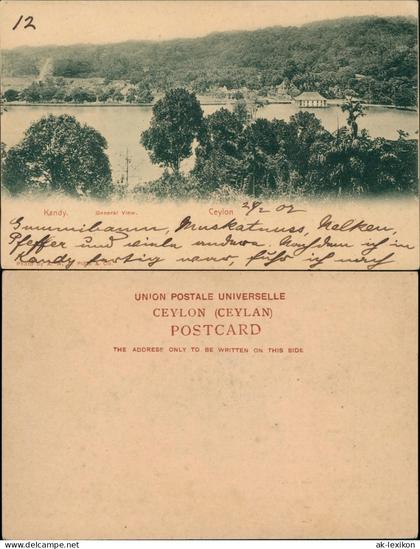 12
Kandy. General View. Ceylon 24/2 02
Gummibaum, Muskatnuss, Nelken,
Pfeffer und viele andere. Nachdem ich in
Kandy fertig war, fuhr ich nach
UNION POSTALE UNIVERSELLE
CEYLON (CEYLAN)
POSTCARD
THE ADDRESS ONLY TO BE WRITTEN ON THIS SIDE
© ak-lexikon
www.ak-lexikon.de